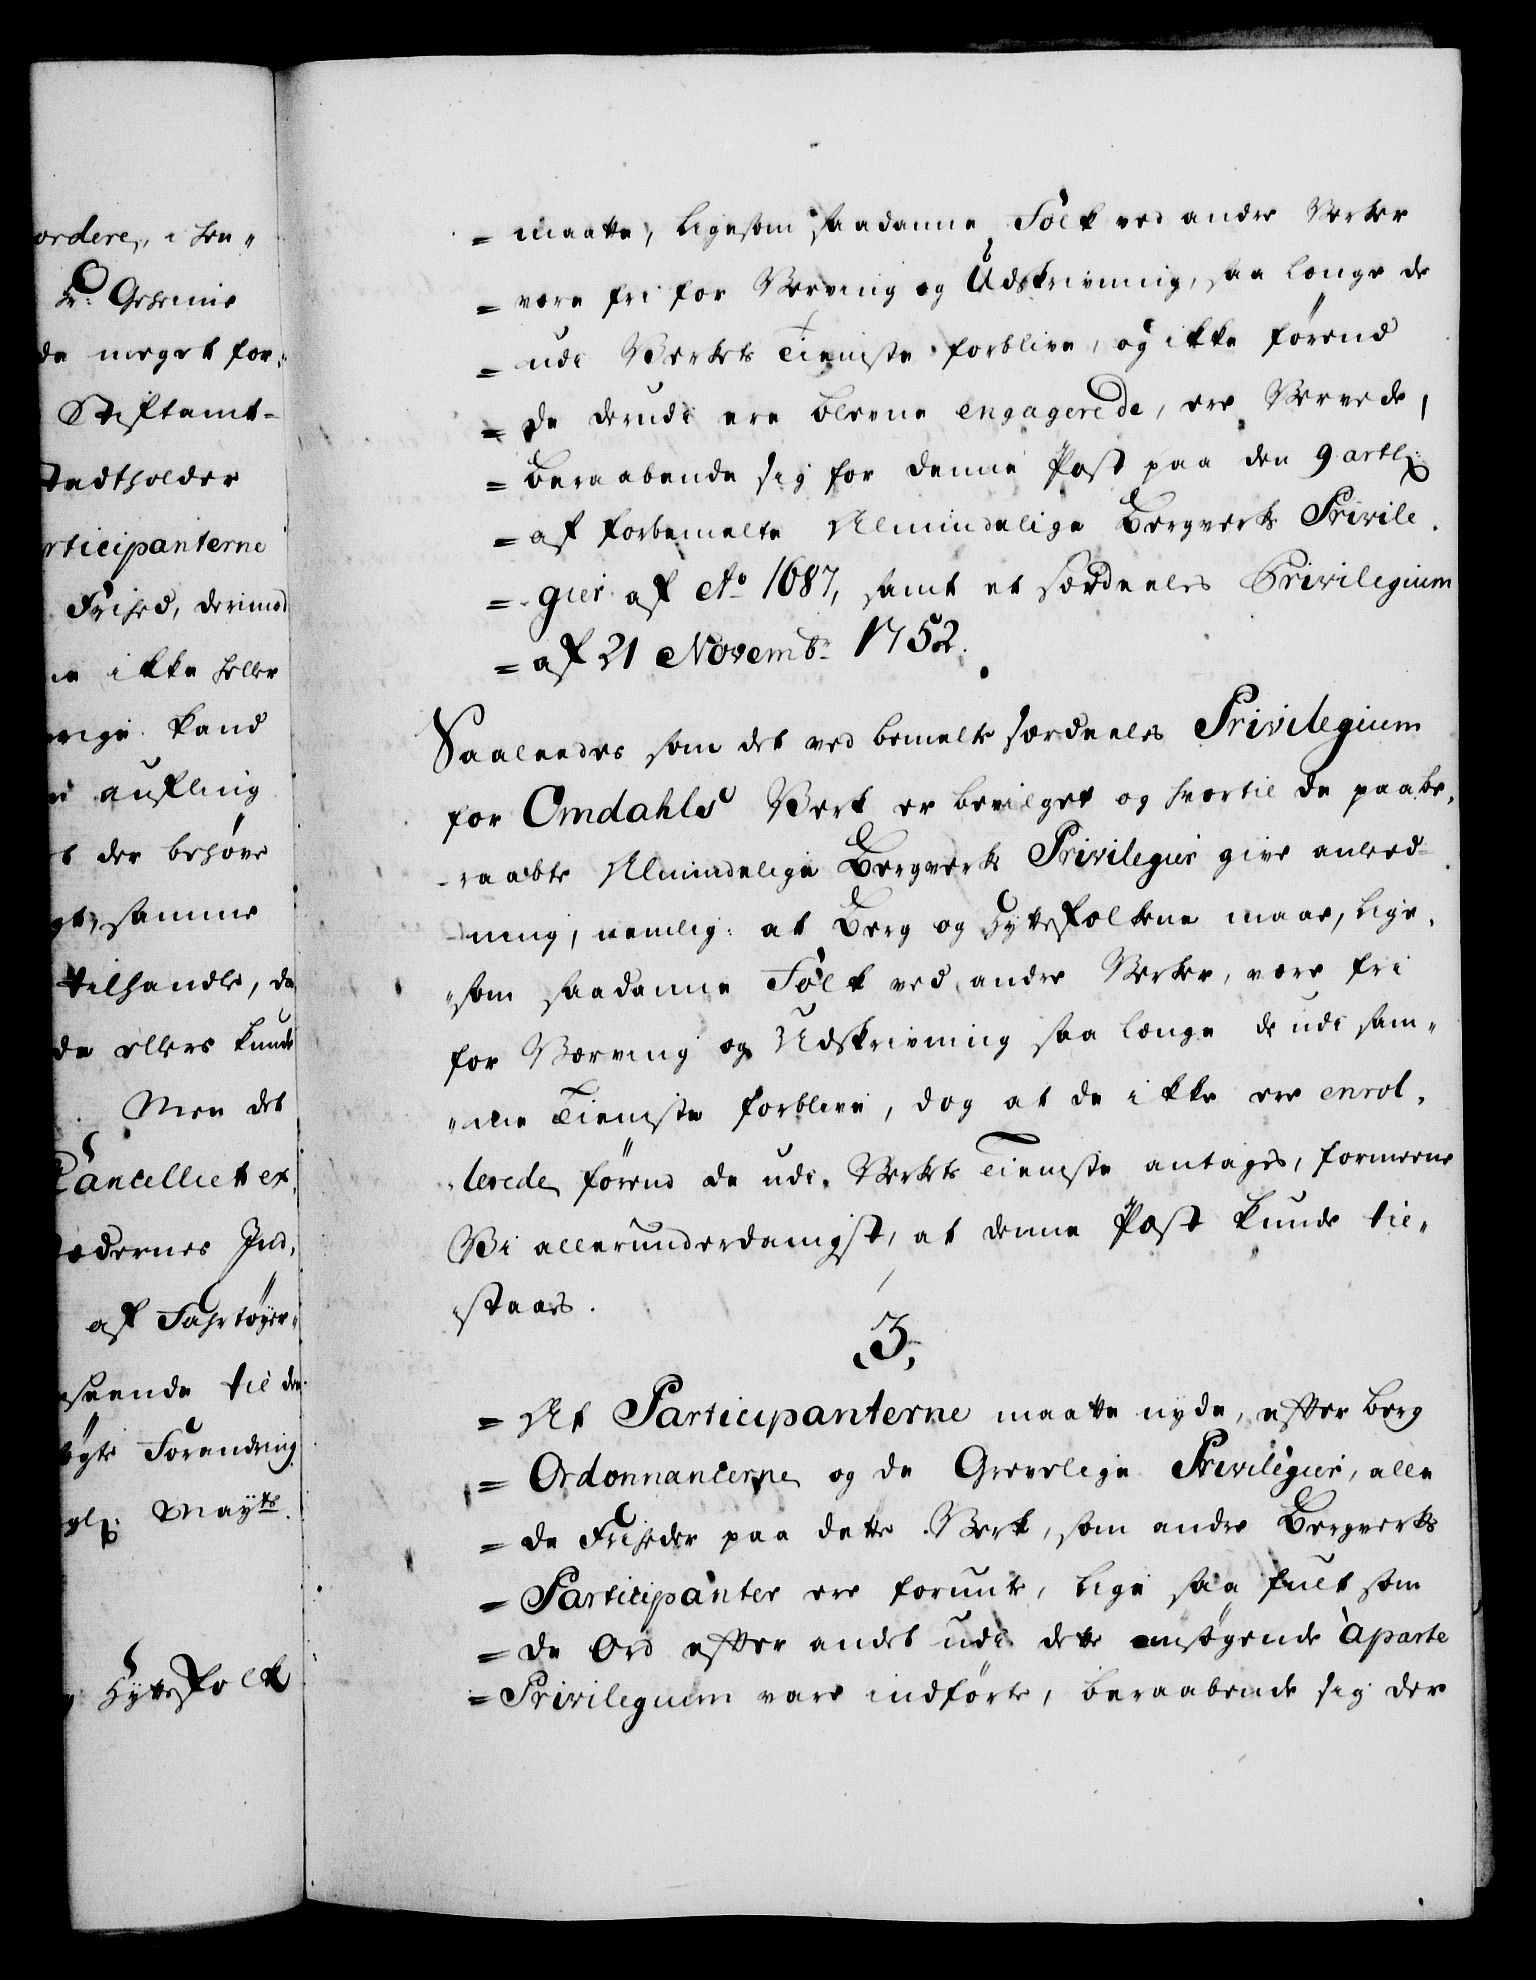 ordere, i hen„
Hr: Geheime
de meget for„
Stiftamt-
Stadtholder
rticipanterne
Frihed, derimod
ne ikke heller
kand
aufling
t der behöve
samme
tilhandle, da
de ellers kunde
Men det
Cancelliet ex,
ædernes Ind,
af Fahrtøyer„
seende til den
øgte Forandring
Mayts.
Hyttefolk
= maatte, ligesom saadanne Folk ved andre Verker
= være fri for Verving og Udskrivning, saa længe de
= udi Verkets Tieniste forblive, og ikke förend
= de derudi ere blevne engagerede, ere Vervede,
= beraabende sig for denne Post paa den 9 artl:
= af forbemelte Almindelige Bergverks Privile.
= -gier af Ao 1687, samt et særdeeles Privilegium
= af 21 Novembr. 1752.
Saaleedes som det ved bemelte særdeeles Privilegium
for Omdahls Verk er bevilget og hvortil de paabe,
-raabte Almindelige Bergverks Privilegier give anled-
-ning, nemlig: at Berg og Hyttefolkene maae, lige,
„som saadanne Folk ved andre Verker, være fri
for Værving og Udskrivning saa længe de udi sam„
„me Tieniste forblive, dog at de ikke ere enrol,
„lerede förend de udi Verkets Tieniste antages, formeene
Vi allerunderdanigst, at denne Post kunde til„
„staaes.
3,
= At Participanterne maatte nyde, efter Berg
= Ordonnancerne og de Grevelige Privilegier, alle
= de Friheder paa dette Verk, som andre Bergverks
= Participanter ere forunte, lige saa fult som
= de Ord efter andet udi dette ansögende àparte
= Privilegium vare indförte, beraabende sig der